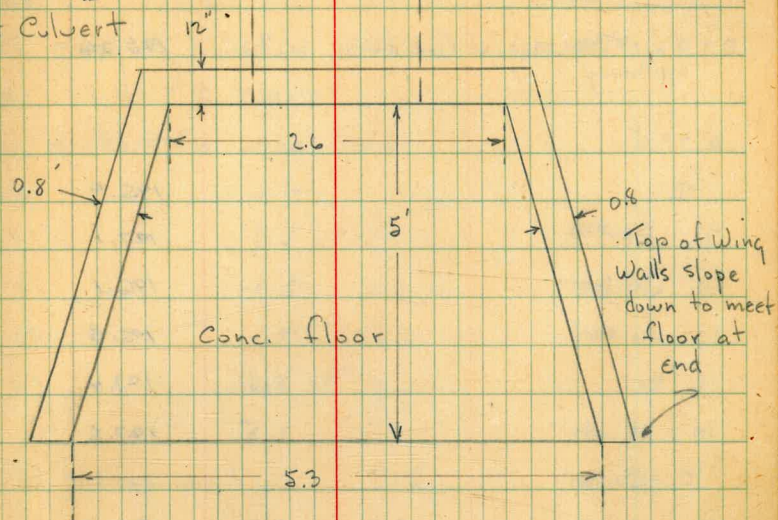 Culvert
12"
2.6
0.8'
0.8
5'
Top of Wing
Walls slope
down to meet
floor at
end
Conc. floor
5.3